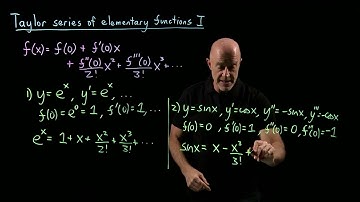 Taylor series of elementary functions I
f(x) = f(0) + f'(0)x
+ f''(0)/2! x² + f'''(0)/3! x³ + ...
1) y = eˣ, y' = eˣ, ...
f(0) = e⁰ = 1, f'(0) = 1, ...
eˣ = 1 + x + x²/2! + x³/3! + ...
2) y = sinx, y' = cosx, y'' = -sinx, y''' = -cosx
f(0) = 0, f'(0) = 1, f''(0) = 0, f'''(0) = -1
sinx = x - x³/3! +